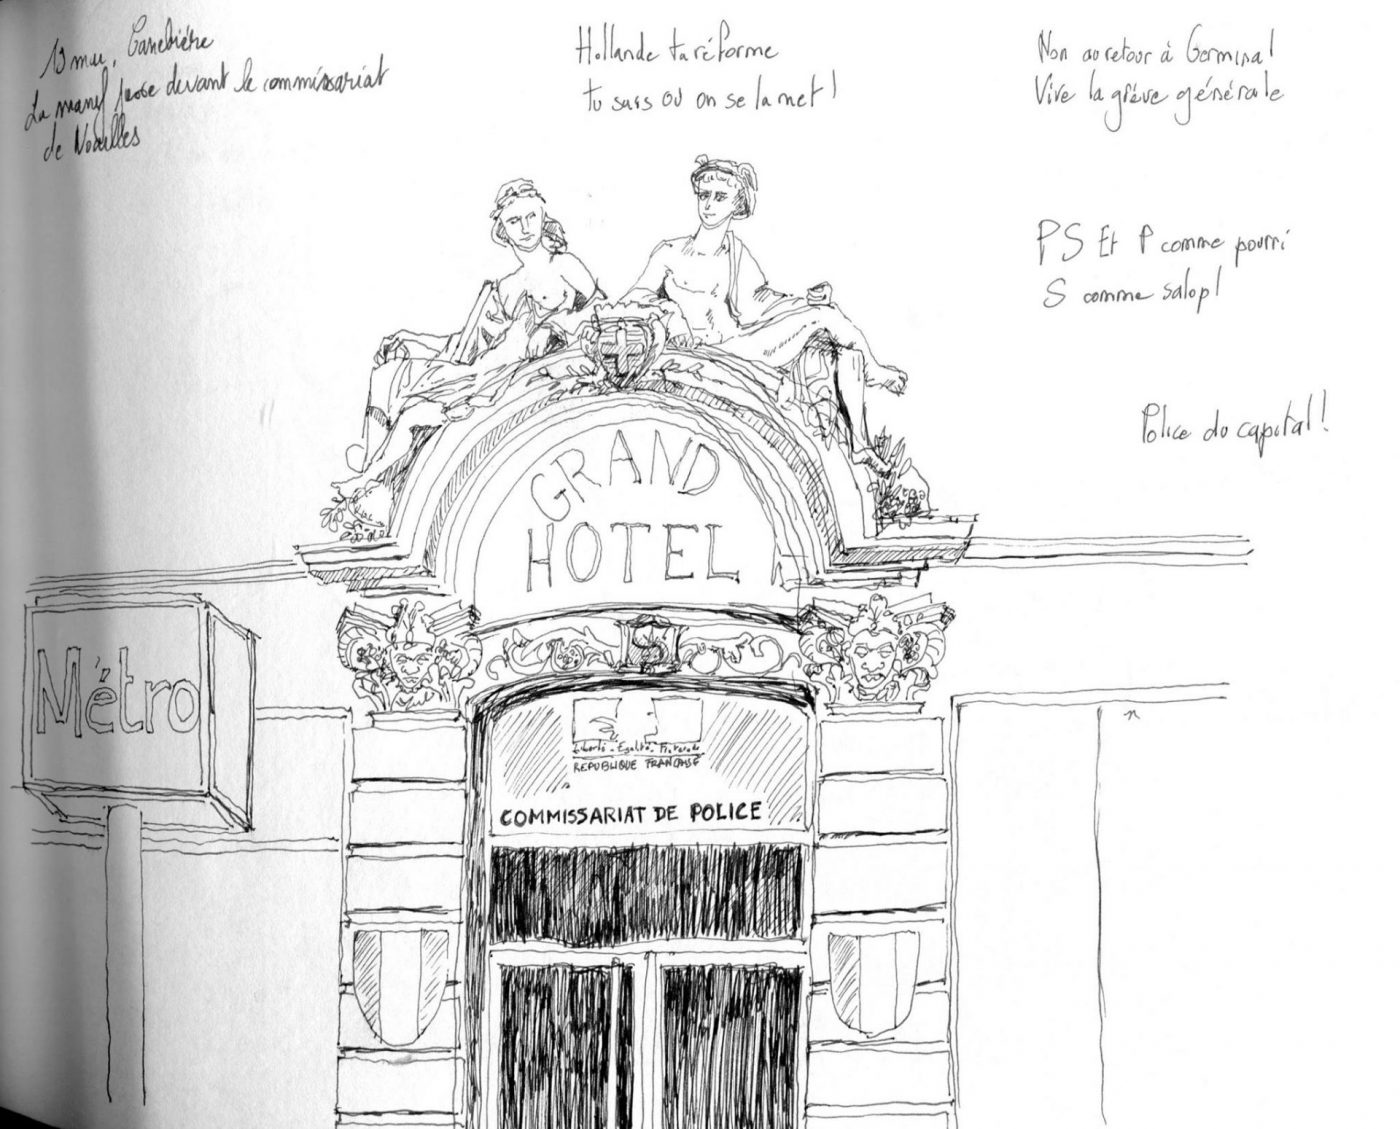 13 mai, Canebière
La manif passe devant le commissariat
de Noailles
Hollande ta réforme
tu sais où on se la met !
Non au retour à Germinal
Vive la grève générale
PS Et P comme pourri
S comme salop !
Police du capital !
GRAND
HOTEL
S
Métro
Liberté - Egalité - Fraternité
REPUBLIQUE FRANÇAISE
COMMISSARIAT DE POLICE